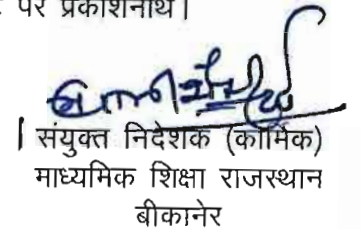 पर प्रकाशनार्थ।
संयुक्त निदेशक (कार्मिक)
माध्यमिक शिक्षा राजस्थान
बीकानेर